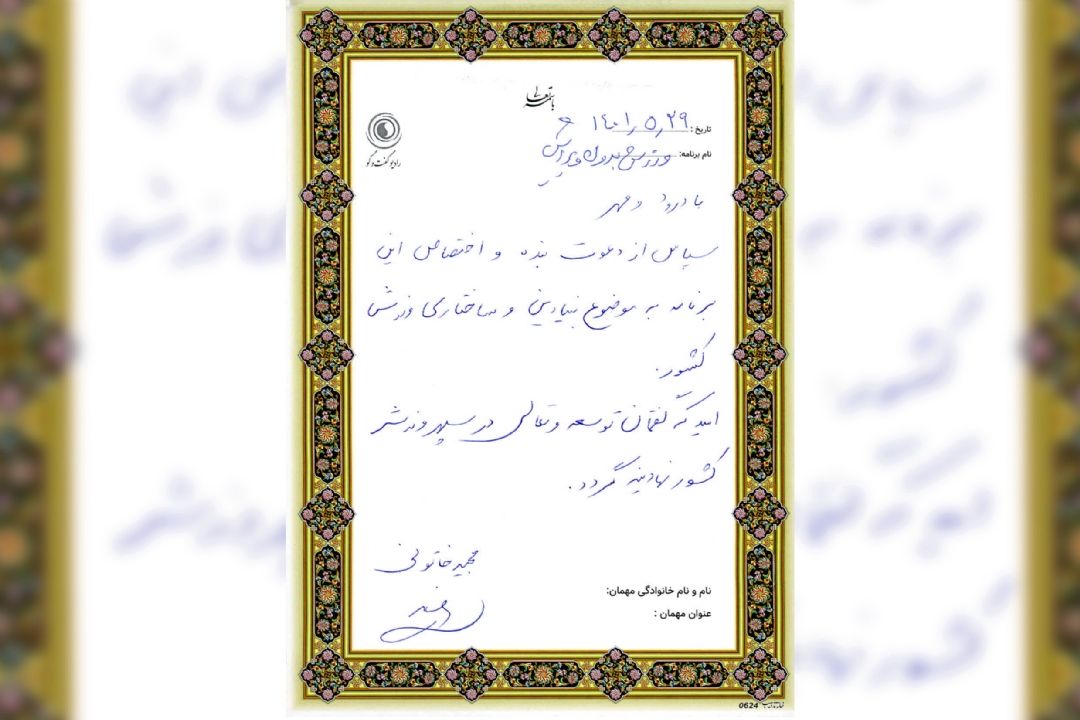 باسمه تعالی
تاریخ: ۱۴۰۱٫۵٫۲۹
رادیو گفت و گو
نام برنامه: ورزش بدون ویرایش
با درود و مهر
سپاس از دعوت بنده و اختصاص این
برنامه به موضوع بنیادین و ساختاری ورزش
کشور.
امید که گفتمان توسعه و تعالی در سپهر ورزش
کشور نهادینه گردد.
مجید خاتونی
نام و نام خانوادگی مهمان:
عنوان مهمان :
0624